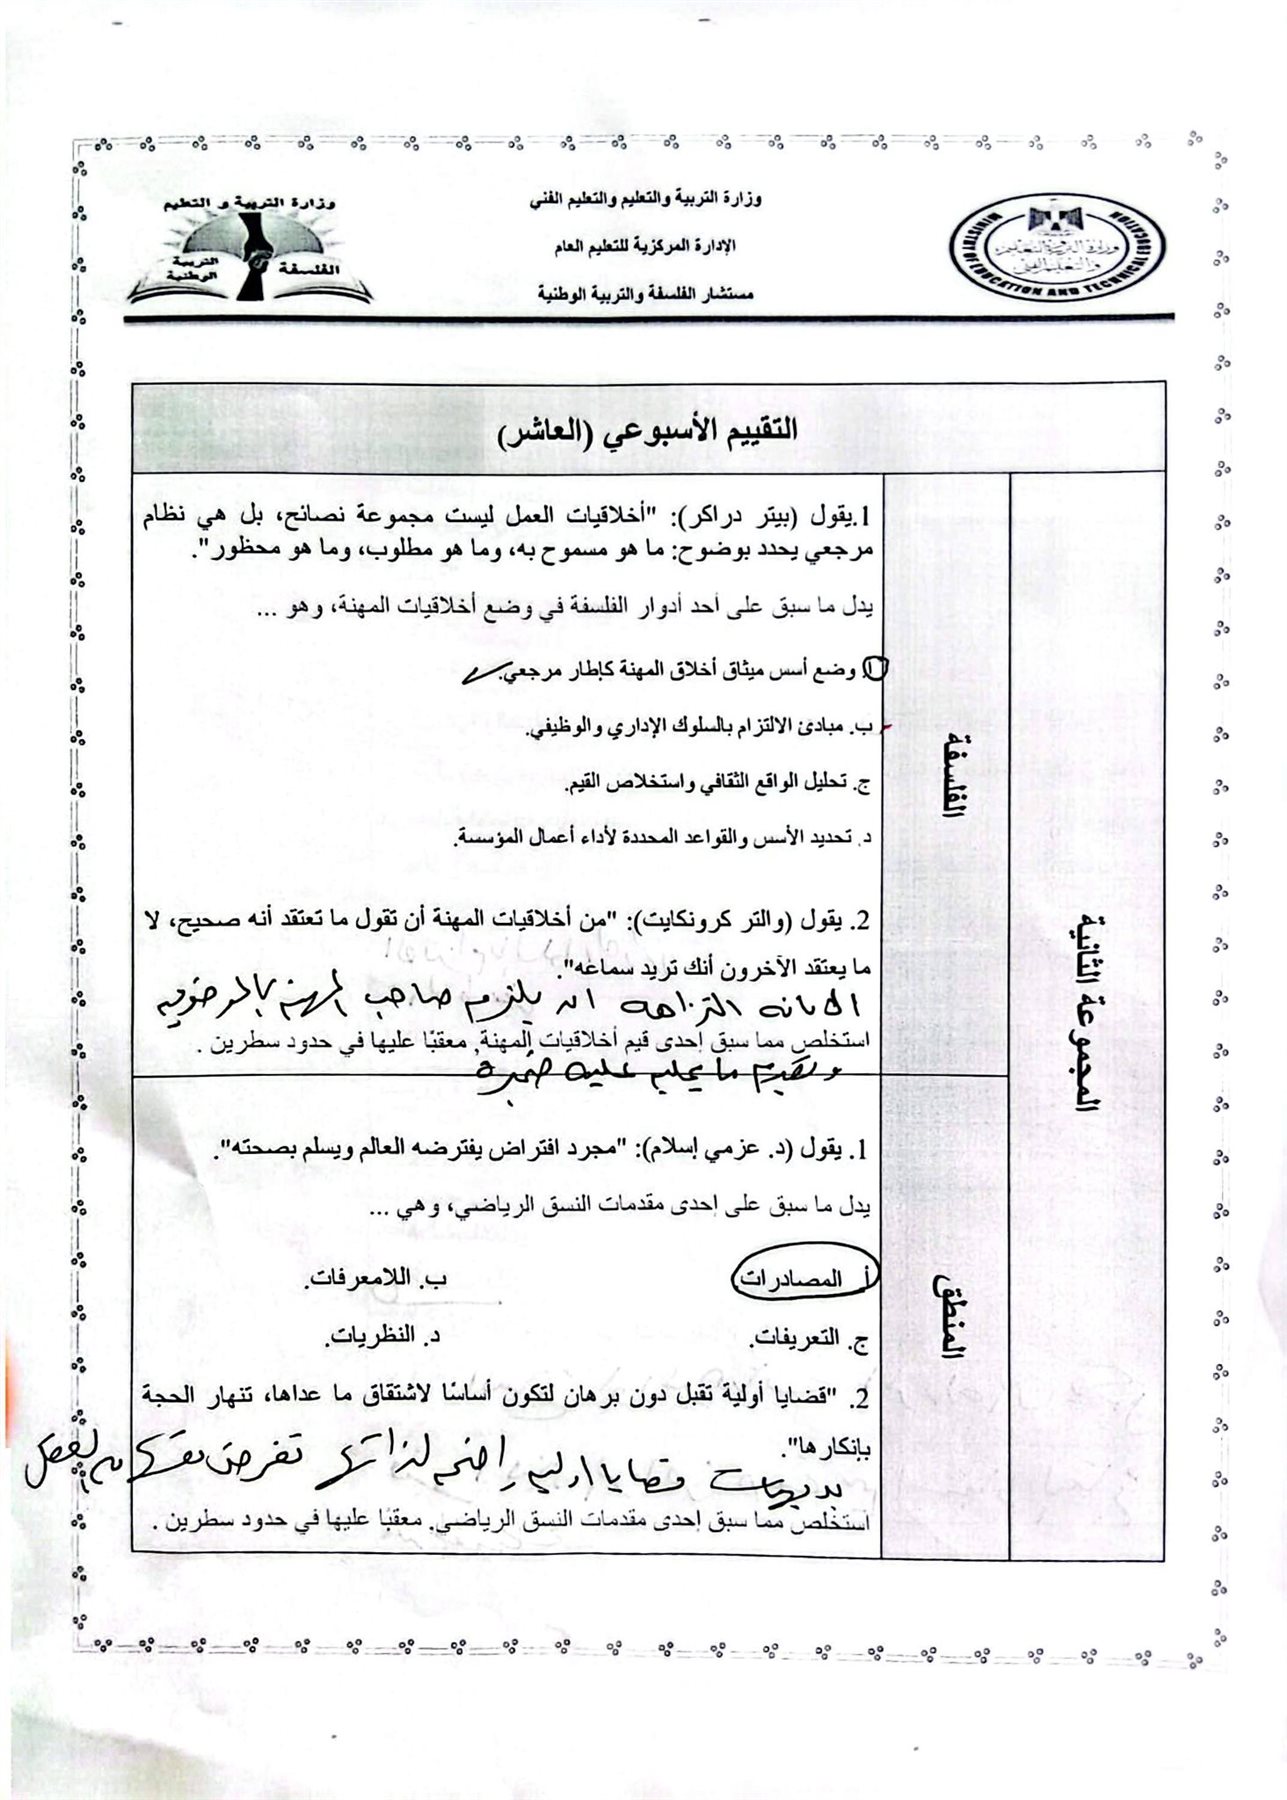 وزارة التربية والتعليم والتعليم الفني
الإدارة المركزية للتعليم العام
مستشار الفلسفة والتربية الوطنية
وزارة التربية و التعليم
الفلسفة
التربية الوطنية
MINISTRY OF EDUCATION AND TECHNICAL EDUCATION
وزارة التربية والتعليم
والتعليم الفني
التقييم الأسبوعي (العاشر)
المجموعة الثانية
الفلسفة
1.يقول (بيتر دراكر): "أخلاقيات العمل ليست مجموعة نصائح، بل هي نظام
مرجعي يحدد بوضوح: ما هو مسموح به، وما هو مطلوب، وما هو محظور".
يدل ما سبق على أحد أدوار الفلسفة في وضع أخلاقيات المهنة، وهو ...
أ. وضع أسس ميثاق أخلاق المهنة كإطار مرجعي.
ب. مبادئ الالتزام بالسلوك الإداري والوظيفي.
ج. تحليل الواقع الثقافي واستخلاص القيم.
د. تحديد الأسس والقواعد المحددة لأداء أعمال المؤسسة.
2. يقول (والتر كرونكايت): "من أخلاقيات المهنة أن تقول ما تعتقد أنه صحيح، لا
ما يعتقد الآخرون أنك تريد سماعه".
الامانه النزاهه ان يلزم صاحب المهنه بالموضوعيه
استخلص مما سبق إحدى قيم أخلاقيات المهنة, معقبًا عليها في حدود سطرين .
ما يمليه عليه ضميرة
المنطق
1. يقول (د. عزمي إسلام): "مجرد افتراض يفترضه العالم ويسلم بصحته".
يدل ما سبق على إحدى مقدمات النسق الرياضي، وهي ...
أ. المصادرات.
ب. اللامعرفات.
ج. التعريفات.
د. النظريات.
2. "قضايا أولية تقبل دون برهان لتكون أساسًا لاشتقاق ما عداها، تنهار الحجة
بإنكارها".
بديهيات قضايا اوليه واضحه لذاتها تفرض نفسها
استخلص مما سبق إحدى مقدمات النسق الرياضي. معقبًا عليها في حدود سطرين .